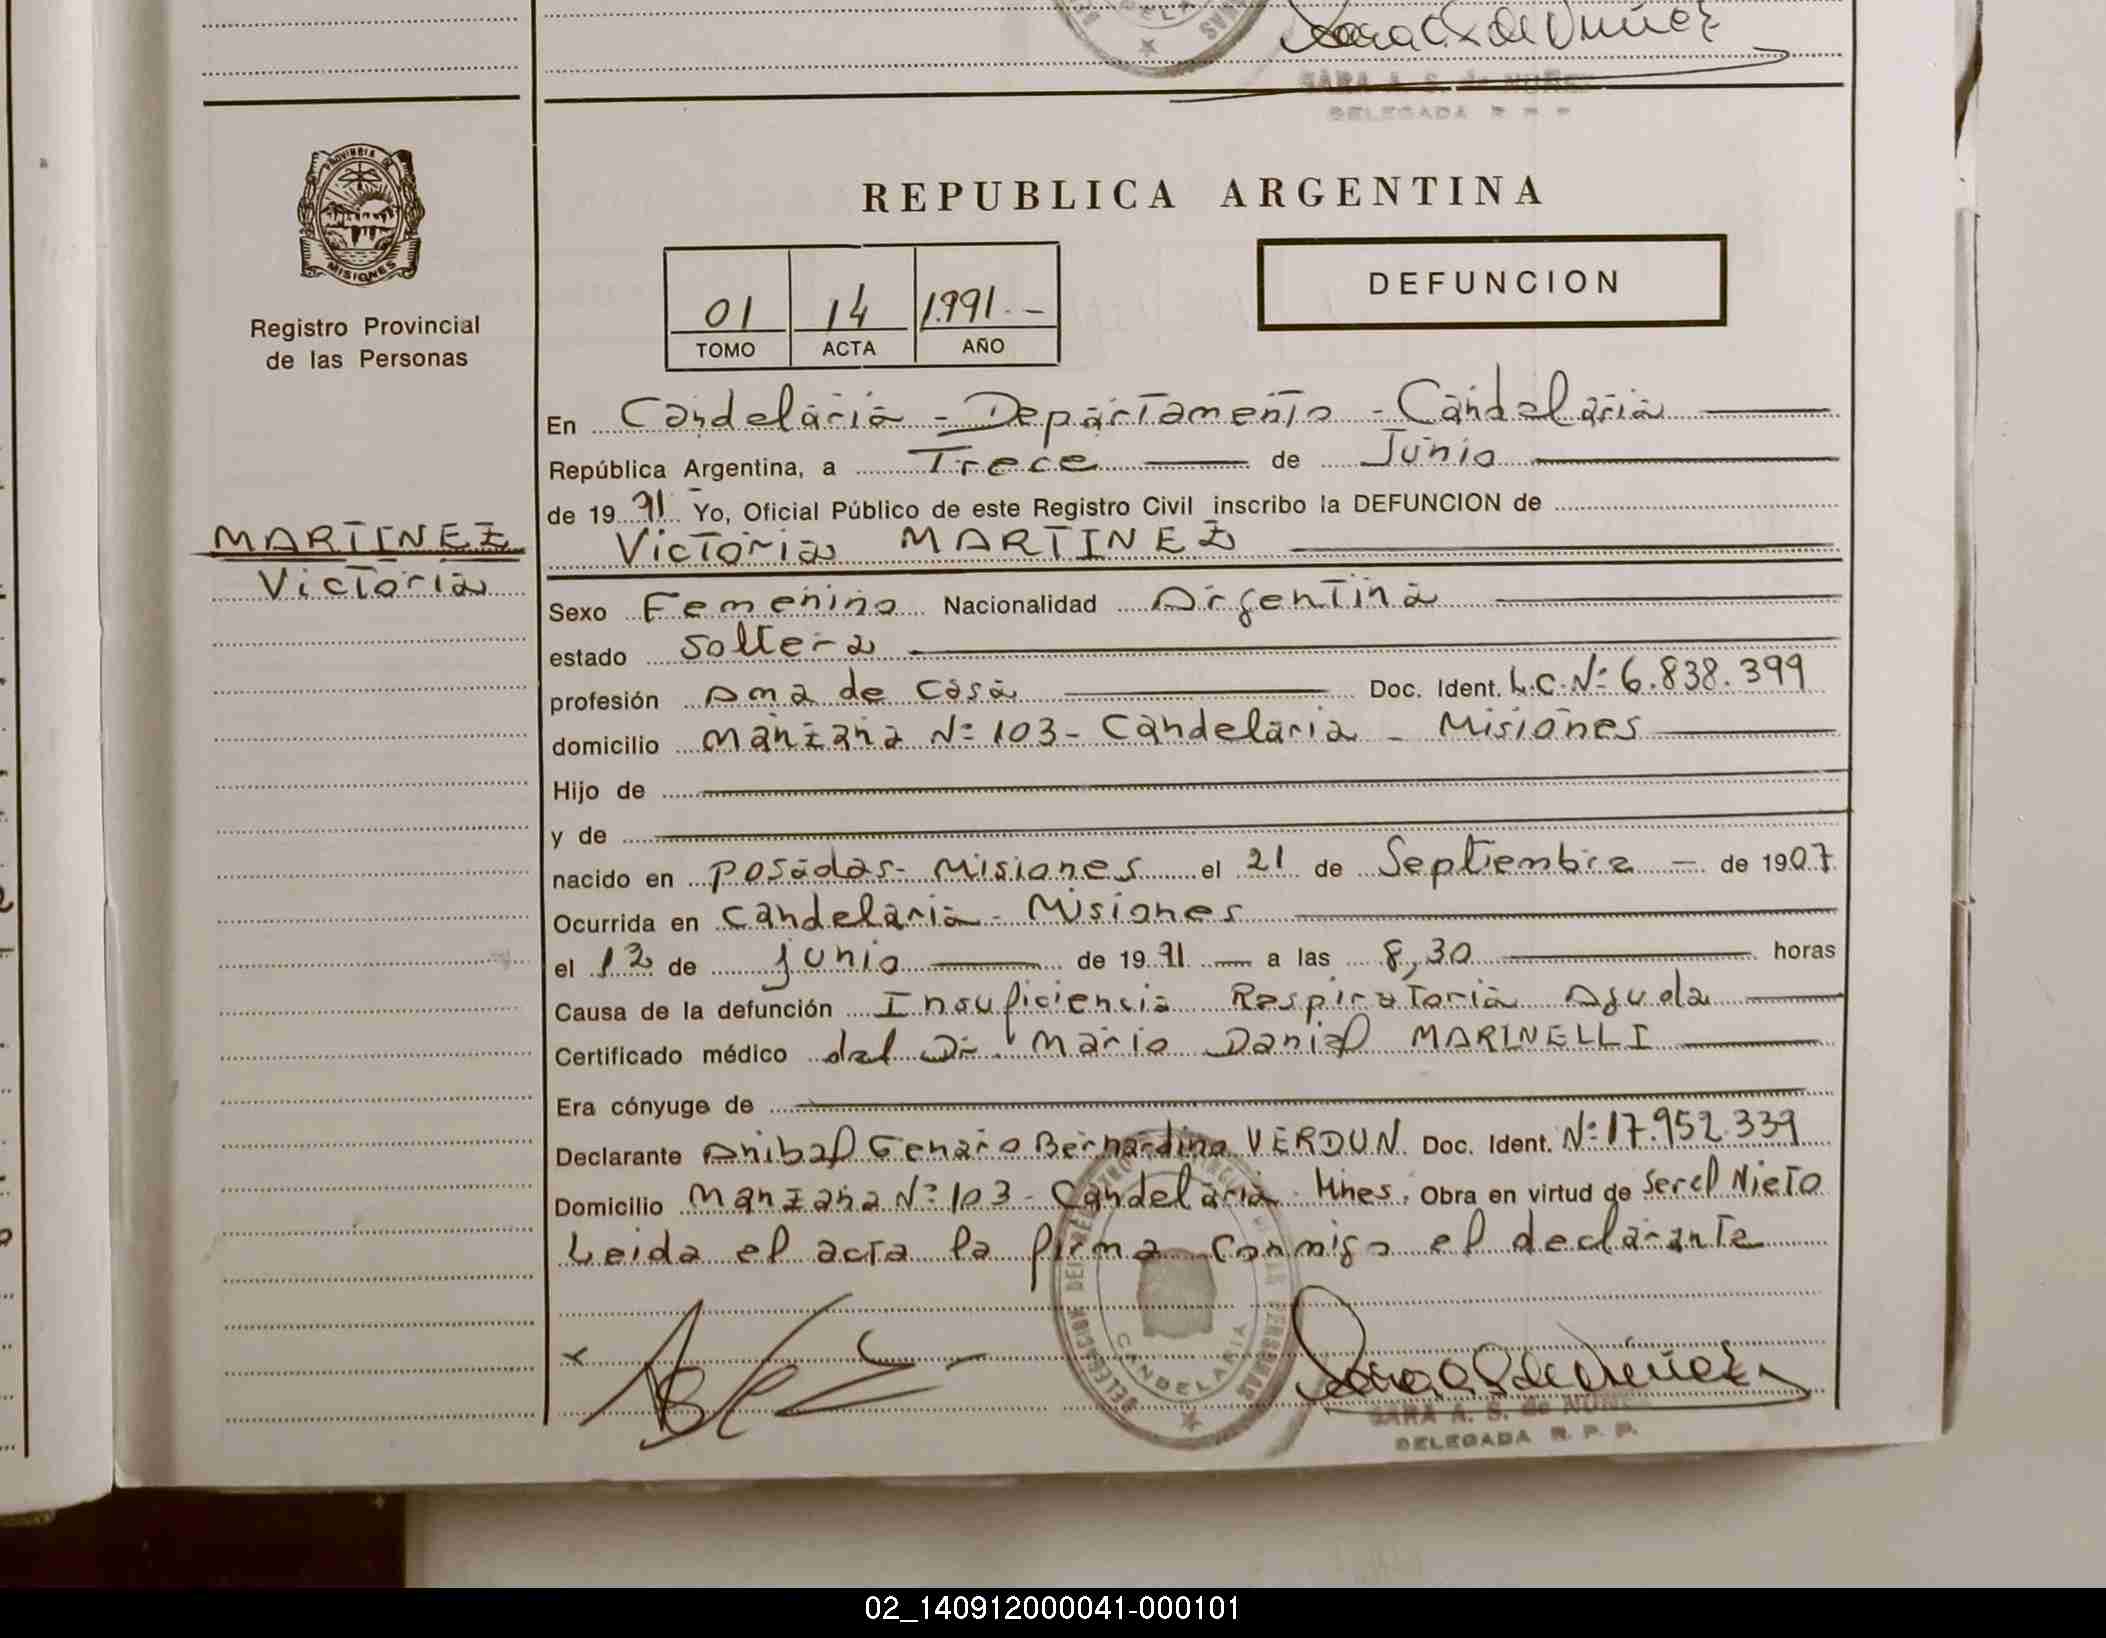 Sara A. S. de Nuñez
SARA A. S. de NUÑEZ
DELEGADA R. P. P.
PROVINCIA DE
MISIONES
Registro Provincial
de las Personas
MARTINEZ
Victoria
REPUBLICA ARGENTINA
01 14 1.991.-
TOMO ACTA AÑO
DEFUNCION
En Candelaria - Departamento - Candelaria
República Argentina, a Trece de Junio
de 19 91 Yo, Oficial Público de este Registro Civil inscribo la DEFUNCION de
Victoria MARTINEZ
Sexo Femenino Nacionalidad Argentina
estado Soltera
profesión Ama de Casa Doc. Ident. L.C. Nº 6.838.399
domicilio Manzana Nº 103 - Candelaria - Misiones
Hijo de
y de
nacido en Posadas - Misiones el 21 de Septiembre - de 1907
Ocurrida en Candelaria - Misiones
el 12 de junio de 19 91 a las 8,30 horas
Causa de la defunción Insuficiencia Respiratoria Aguda
Certificado médico del Dr. Mario Daniel MARINELLI
Era cónyuge de
Declarante Anibal Genaro Bernardino VERDUN. Doc. Ident. Nº 17.952.339
Domicilio Manzana Nº 103 - Candelaria - Mnes. Obra en virtud de ser el Nieto
Leida el acta la firma conmigo el declarante
DELEGACION DEL REGISTRO PROVINCIAL DE LAS PERSONAS
CANDELARIA
Sara A. S. de Nuñez
SARA A. S. de NUÑEZ
DELEGADA R. P. P.
02_140912000041-000101